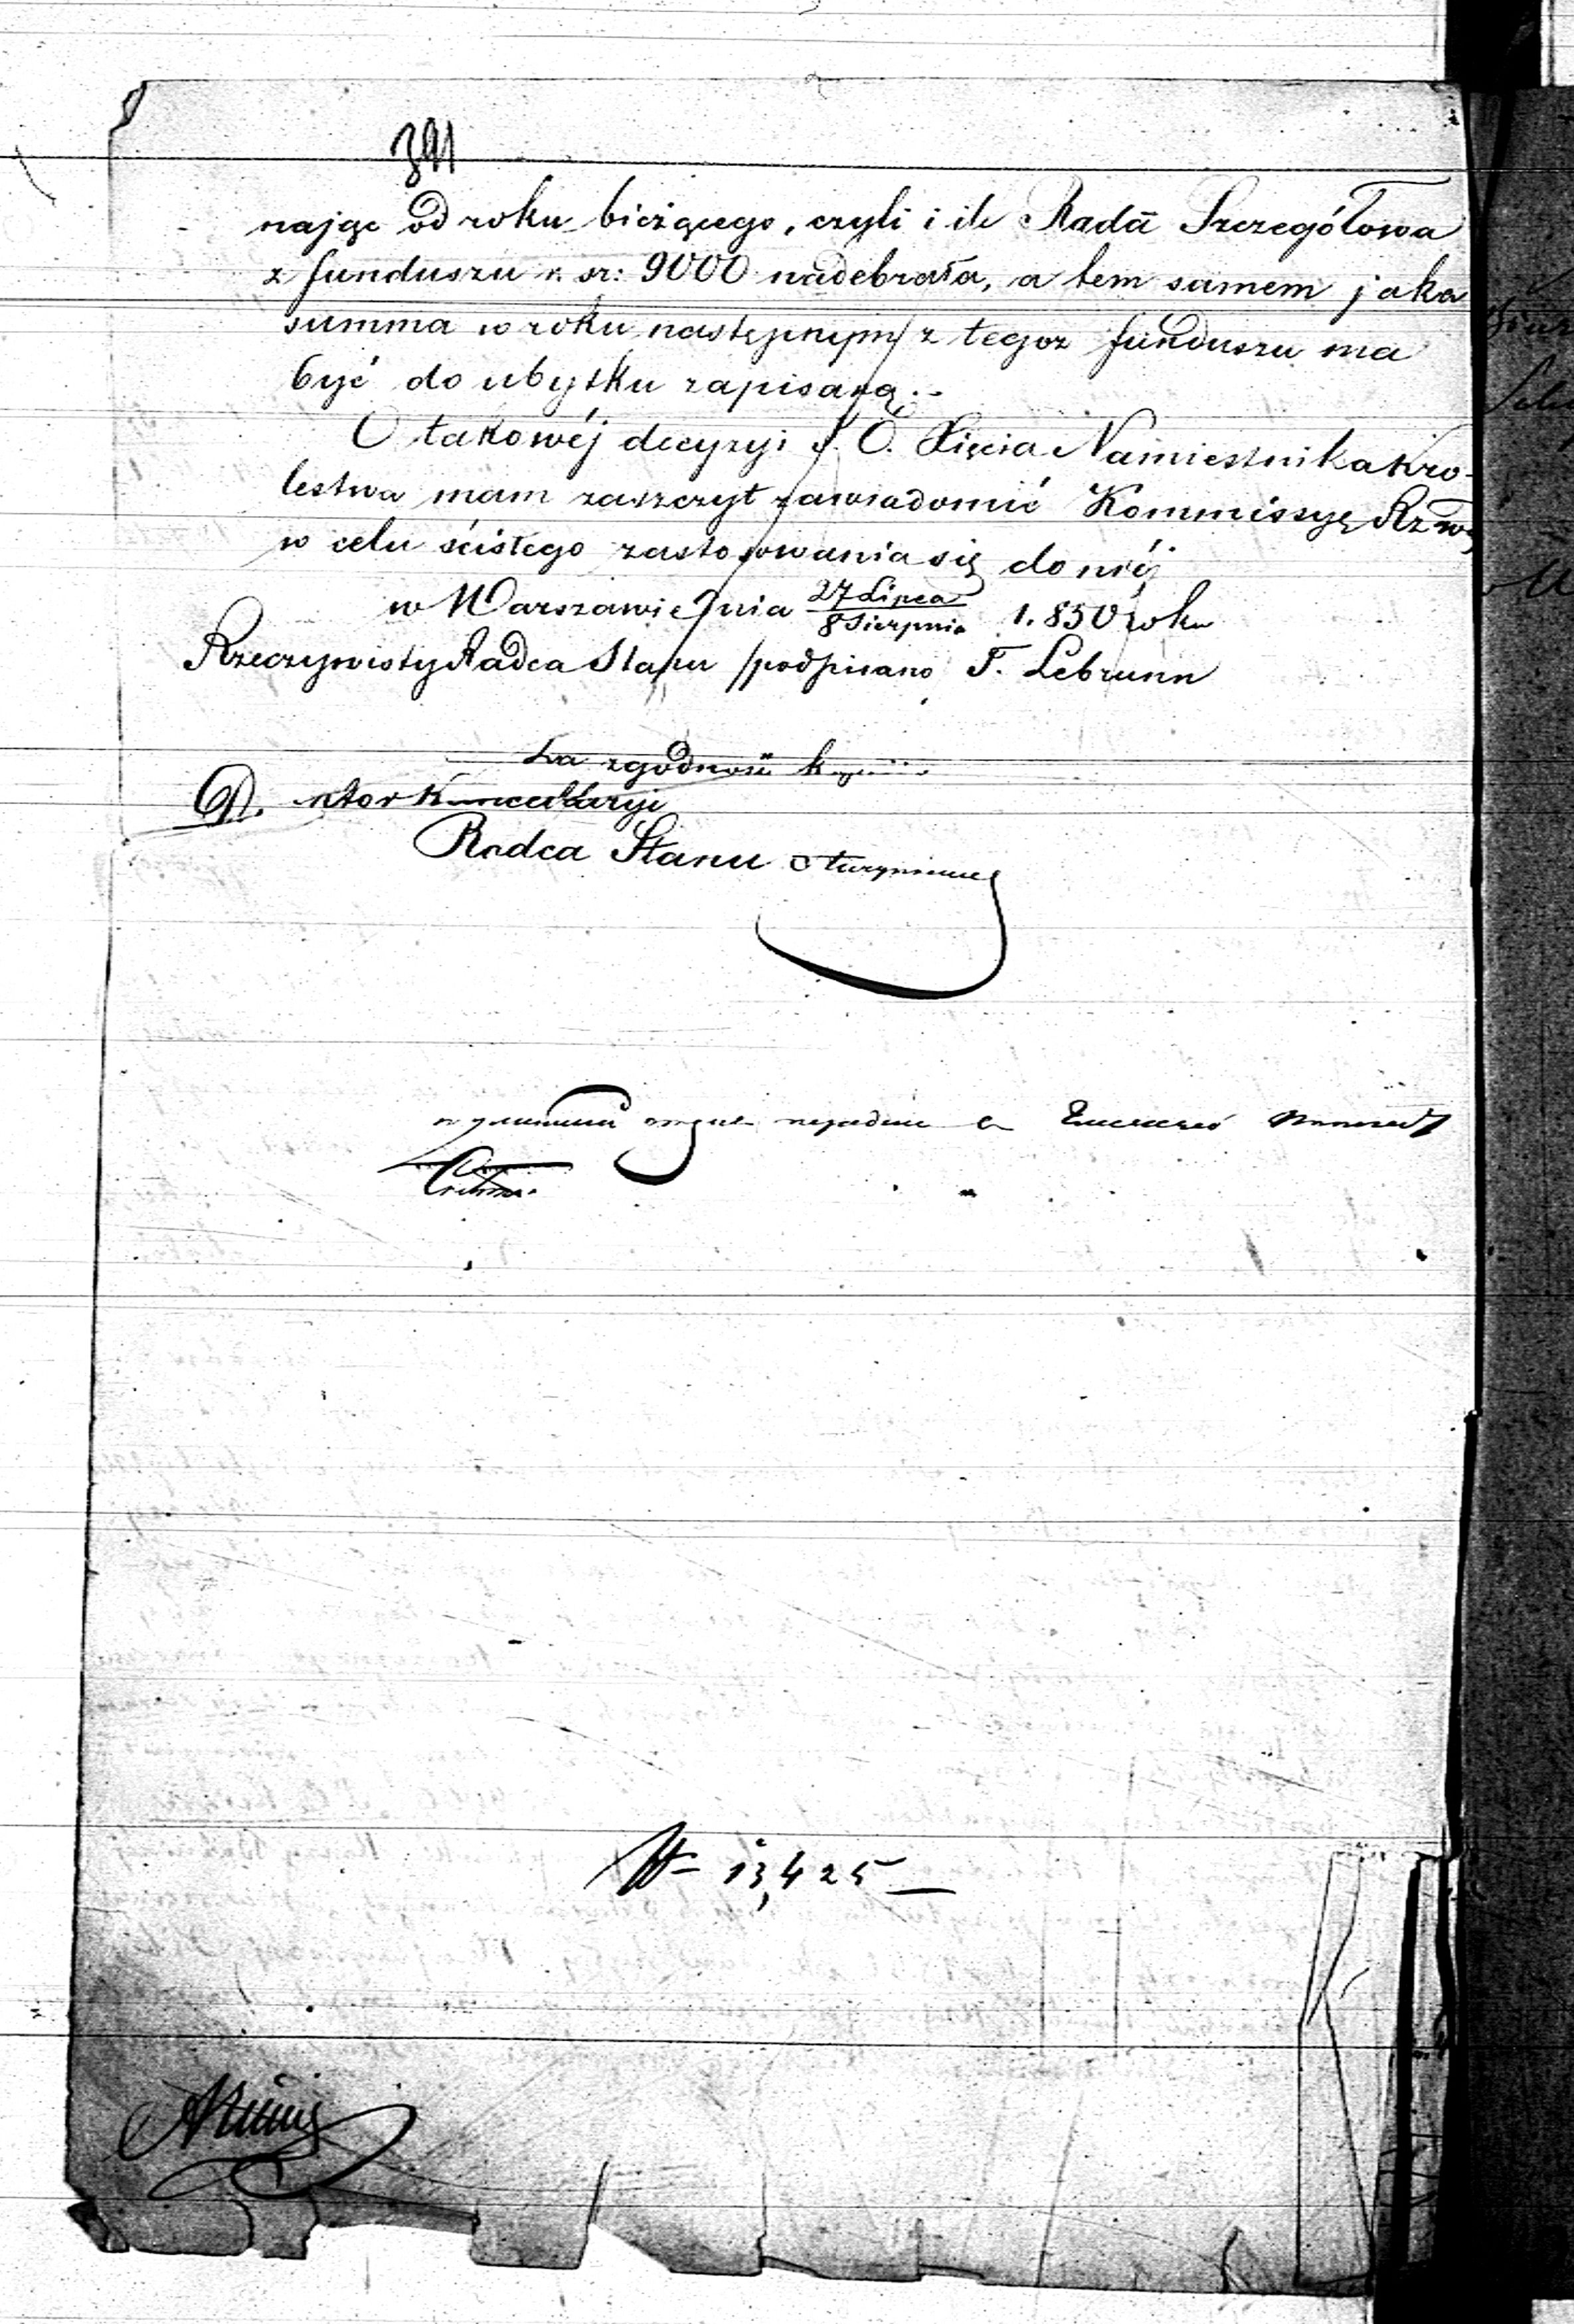 391
nając od roku bieżącego, czyli i ile Rada Szczegółowa
z funduszu r. sr: 9000 nadebrała, a tem samem jaka
summa w roku następnym z tegoż funduszu ma
być do ubytku zapisaną.-
O takowéj decyzyi J. O. Xięcia Namiestnika Kró-
lestwa mam zaszczyt zawiadomić Kommissyę Rzwą
w celu ścisłego zastosowania się do niéj
w Warszawie dnia 27 Lipca / 8 Sierpnia 1.850 roku
Rzeczywisty Radca Stanu /podpisano T. Lebrunn
Za zgodność
Kancellaryi
Radca Stanu
N 13,425